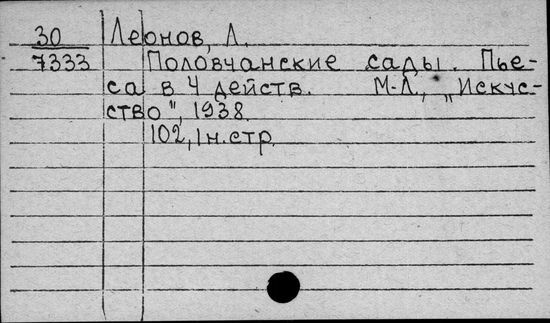 30 Леонов, Л.
7333 Половчанские сады. Пье-
са в 4 действ. М-Л., „Искус-
ство", 1938.
102, 1 н. стр.